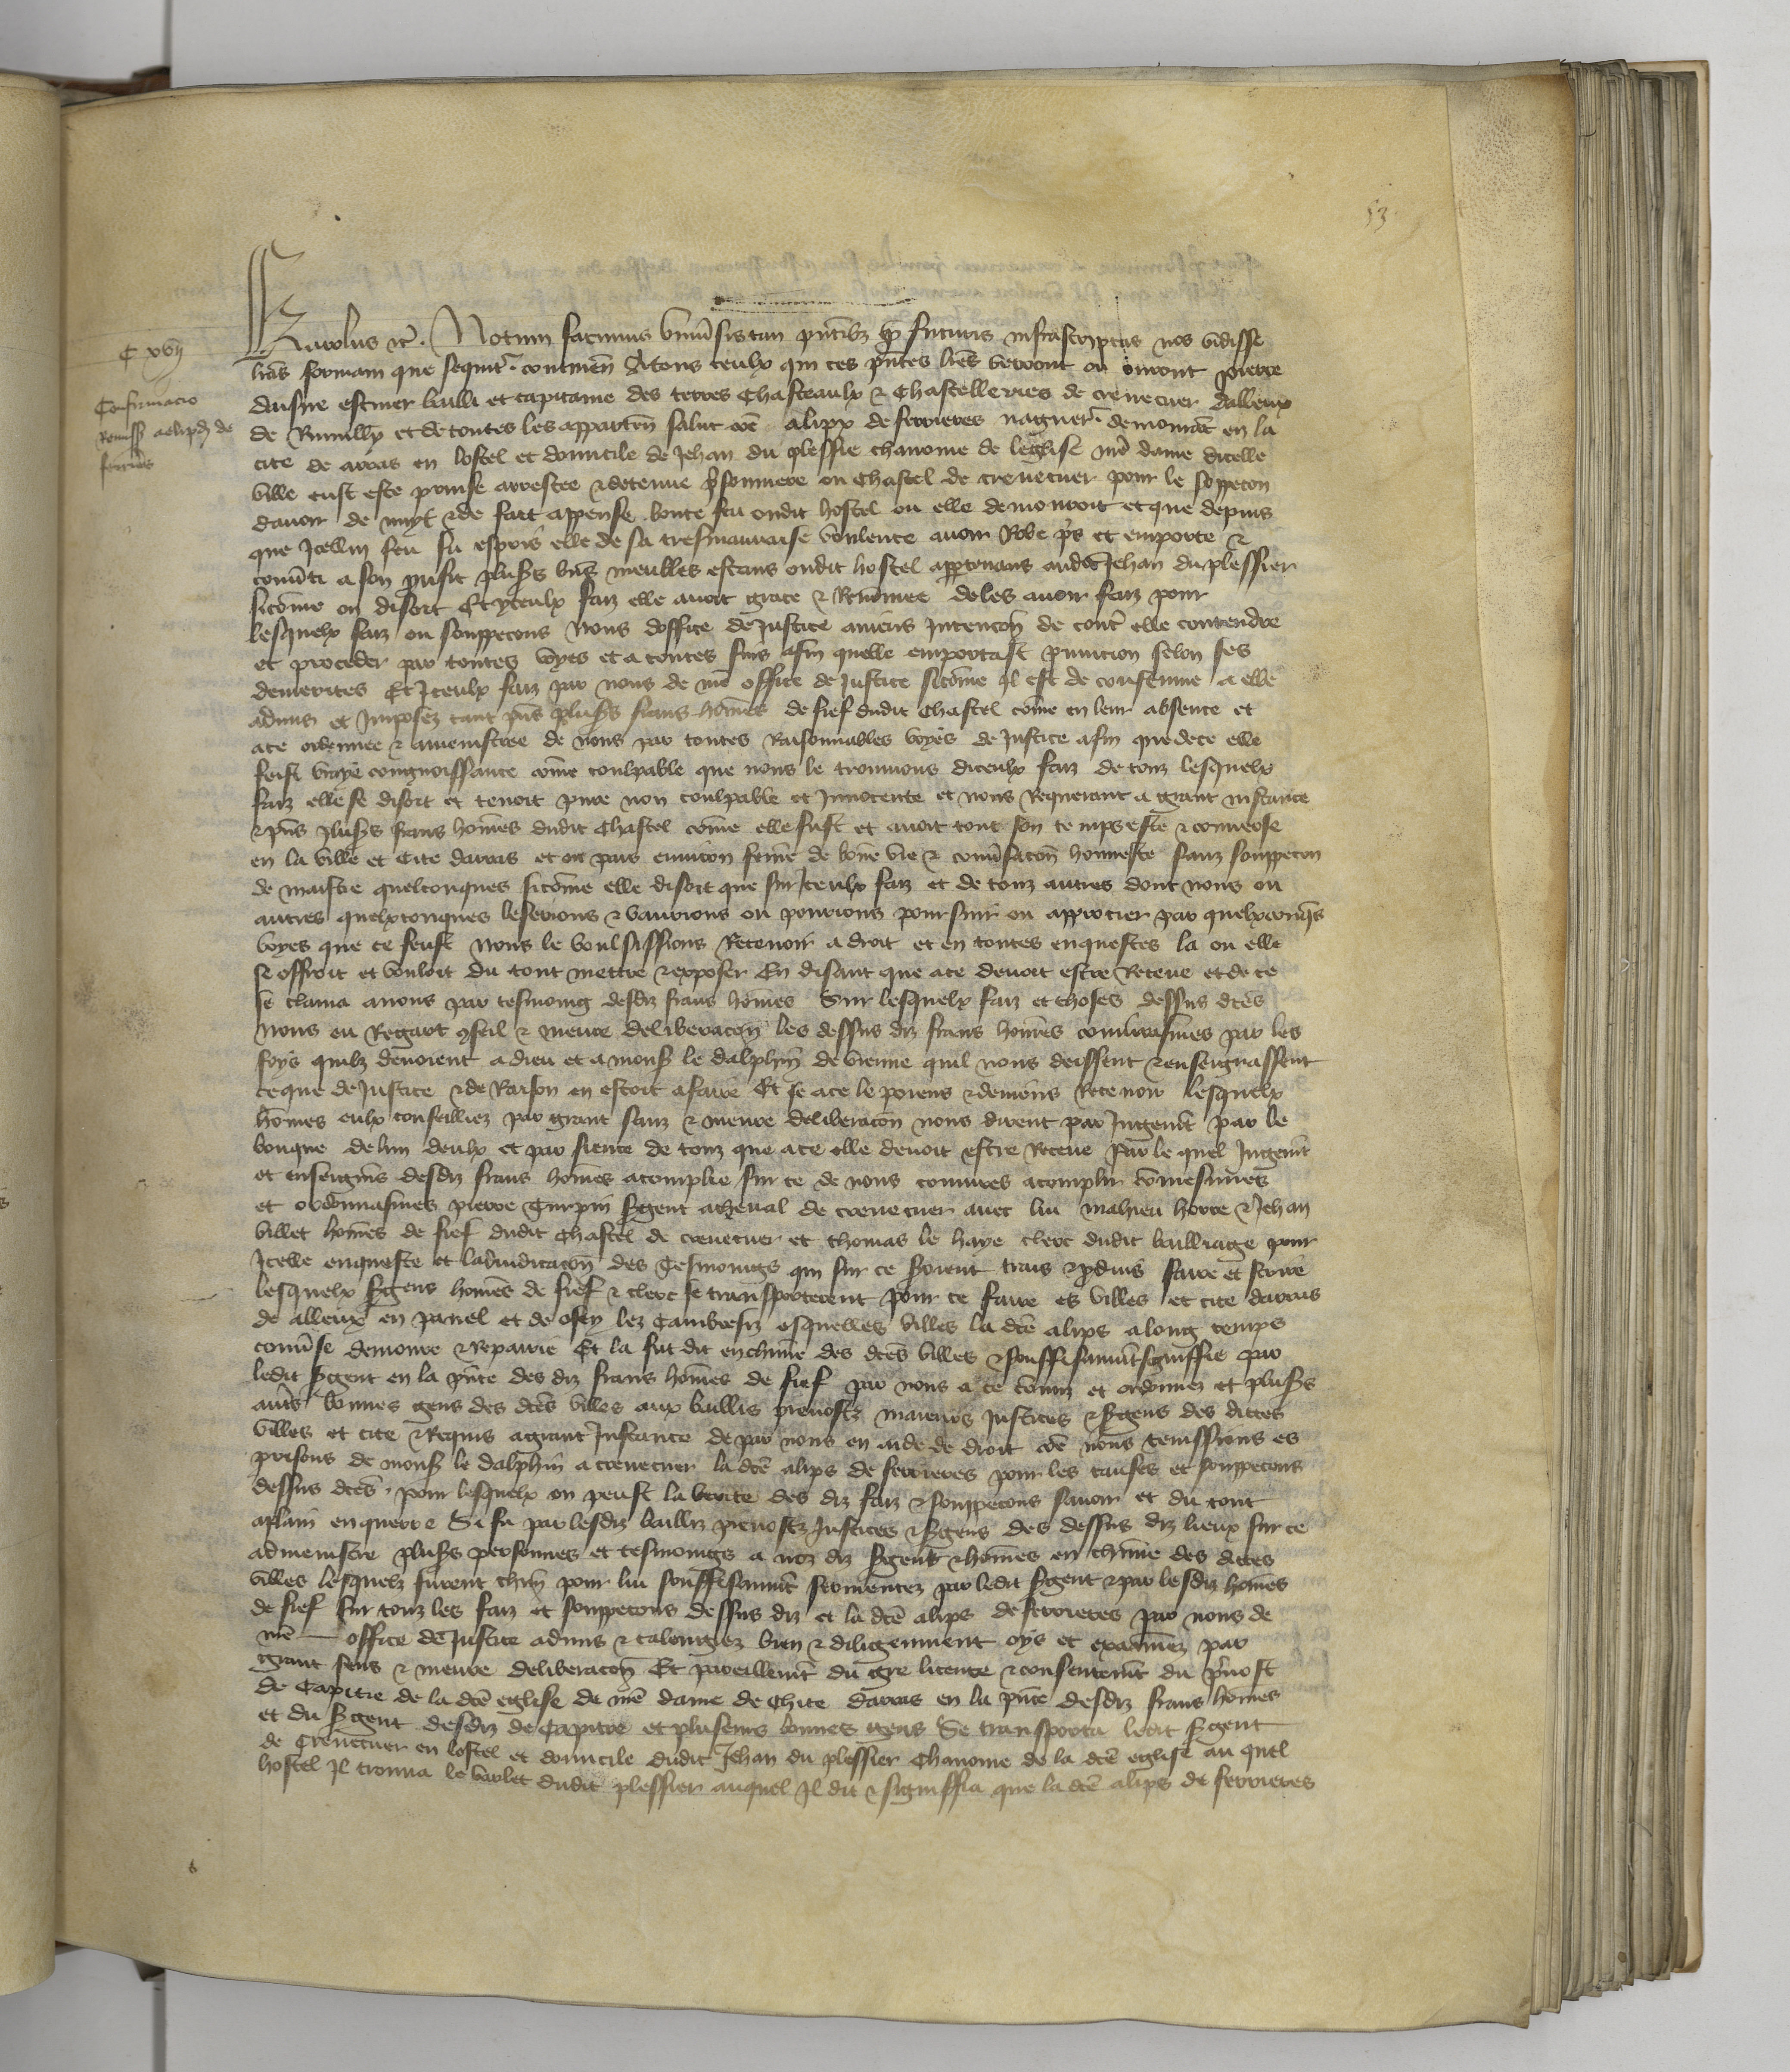 53
C xvij
Confirmacio
remiss aelipdis de
ferieres
Karolus etc. Notum facimus univsis tam pntibz qp futuris infrascriptas nos vidisse
lras formam que sequitr continen A tous ceulx qui ces pntes lres verront ou orront pierre
dusne escuier bailli et capitaine des terres chasteaulx & chastelleries de crevecuer dalleux
de Rumilly et de toutes les apparten salut come alips de ferrieres naguer demourat en la
cite de arras en lostel et domicile de Jehan du plessie chanoine de leglise nre dame dicelle
ville eust este prinse arrestee & detenue prsonniere ou chastel de crevecuer pour le soppecon
davoir de nuyt & de fait appense boute feu oudit hostel ou elle demouroit et que depuis
que Icellui feu fu espris elle de sa tresmauvaise voulente avoir Robe pris et emporte &
convti a son prufit plusrs biens meubles estans oudit hostel appartenans audit Jehan du plessier
sicome on disoit Et yceulx faiz elle avoit grace & Renomee de les avoir faiz pour
lesquelx faiz ou souppecons Nous doffice de Justice aviens Intencon de contr elle contendre
et proceder par toutes voyes et a toutes fins afin quelle emportast punicion selon ses
demerites Et Iceulx faiz par nous de nre office de Justice sicome Il est de coustume a elle
admis et Imposez tant pns plusrs frans homes de fief dudit chastel come en leur absence et
a ce ordennee & amenistree de nous par toutes Raisonnables voyes de Justice afin que de ce elle
feist vraye congnoissance come coulpable que nous le trouvions diceulx faiz de touz lesquelx
faiz elle se disoit et tenoit pure non coulpable et Innocente et nous Requerant a grant instance
& pns plusrs frans homes dudit chastel come elle fust et avoit tout son temps este & converse
en la ville et cite darras et ou pais environ feme de bone vie & convsacon honneste sanz souppecon
de malfce quelconques sicome elle disoit que sur Iceulx faiz et de touz autres dont nous ou
autres quelxconques lesserions & vaurions ou pourrions poursuir ou approcier par quelxconqs
voyes que ce feust nous le voulsissions Recevoir a droit et en toutes enquestes la ou elle
se offroit et vouloit du tout mettre & exposer En disant que a ce devoit estre Receue et de ce
se clama a nous par tesmoing desdiz frans homes Sur lesquelx faiz et choses dessus dces
nous eu Regart 9seil & meure deliberacon les dessus diz frans homes conjurasmes par les
foys quilz devoient a dieu et a monss le dalphin de vienne quil nous deissent & enseignassent
ce que de Justice & de Raison en estoit a faire Et se a ce le poiens & deviens Recevoir lesquelx
homes eulx conseilliez par grant sanz & meure deliberacon nous dirent par Jugemt par le
bouque de lun deulx et par sience de touz que a ce elle devoit estre Receue Par le quel Jugemt
et enseigms desdiz frans homes acomplie sur ce de nous conjures acomplir comeismes
et ordonnasmes pierre Turpin sgent a cheval de crevecuer avec lui mahieu horre & Jehan
villet homes de fief dudit chastel de crevecuer et thomas le haye clerc dudit bailliage pour
Icelle enqueste et ladjudicacon des Tesmoings qui sur ce seroient trais & pduis faire et scrire
lesquelx sgens homes de fief & clerc se transporterent pour ce faire es villes et cite darras
de alleux en panel et de oisy lez cambresiz esquelles villes la dce alips a long temps
convse demoure & repairie Et la fut dit en chune des dces villes & souffisamt signiffie par
ledit sgent en la pnce des diz frans homes de fief par nous a ce comis et ordonnez et plusrs
autrs bonnes gens des dces villes aux baillis prevostz maieurs Justices & sgens des dittes
villes et cite & Requis a grant Instance de par nous en aide de droit come nous tenissions es
prisons de monss le dalphin a crevecuer la dce alips de ferrieres pour les causes et souppecons
dessus dces pour lesquelx on peust la verite des diz faiz & souppecons savoir et du tout
aplain enquerre Si fu par lesdiz bailliz prevostz Justices & sgens des dessus diz lieux sur ce
admenistre plusrs personnes et tesmoings a noz diz sgent & homes en chune des dittes
villes lesquelz furent chun pour lui souffisaumt sermentez par ledit sgent & par lesdiz homes
de fief sur touz les faiz et souppecons dessus diz et la dce alips de ferrieres par nous de
nre office de Justice admis & calengez bien & diligemment oys et examinez par
grant sens & meure deliberacon Et pareillemt du gre licence & consentemt du prvost
de Capitre de la dce eglise de nre dame de chite darras en la pnce desdiz frans homes
et du sgent desdiz de Capitre et plusieurs bonnes gens Se transporta ledit sgent
de Crevecuer en lostel et domicile dudit Jehan du plessier chanoine de la dce eglise au quel
hostel Il trouva le varlet dudit plessier auquel Il dit & signiffia que la dce alips de ferrieres